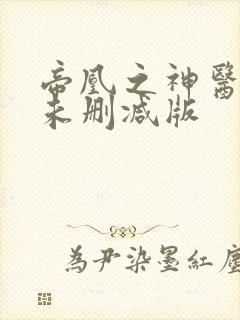 帝凰之神醫
未删减版
為尹染墨紅塵